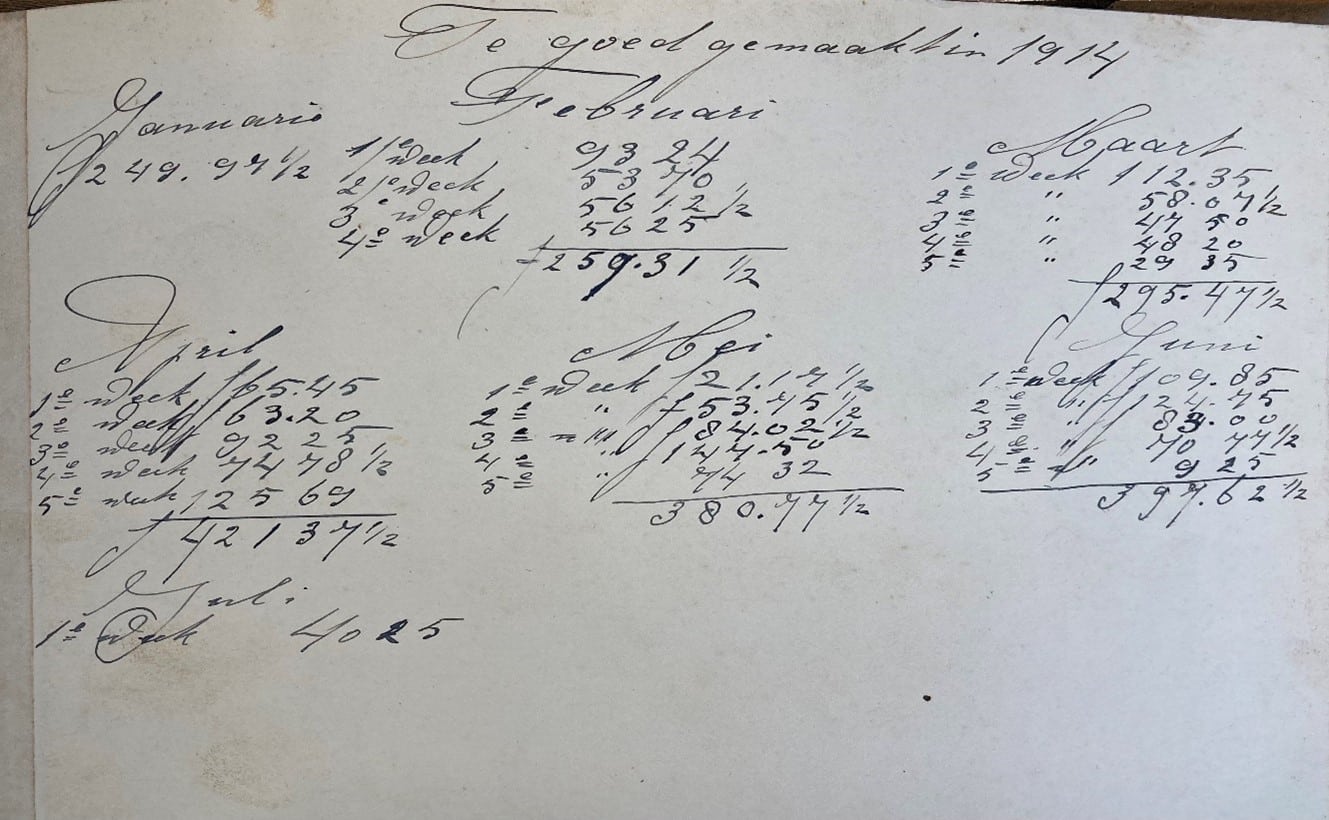 Te goed gemaakt in 1914
Januarie
ƒ249.97 1/2
Februari
1e week 93 24
2e week 53 70
3e week 56 12 1/2
4e week 56 25
ƒ259.31 1/2
Maart
1e week 112.35
2e " 58.07 1/2
3e " 47 50
4e " 48 20
5e " 29 35
ƒ295.47 1/2
April
1e week ƒ65.45
2e week ƒ63.20
3e week 92 25
4e week 74 78 1/2
5e week 125 69
ƒ421 37 1/2
Mei
1e week ƒ21.17 1/2
2e " ƒ53.75 1/2
3e " ƒ84.02 1/2
4e " ƒ147.50
5e " 74 32
380.77 1/2
Juni
1e week ƒ109.85
2e " ƒ124.75
3e " ƒ83.00
4e " 70 77 1/2
5e " 9 25
397.62 1/2
Juli
1e week 40 25